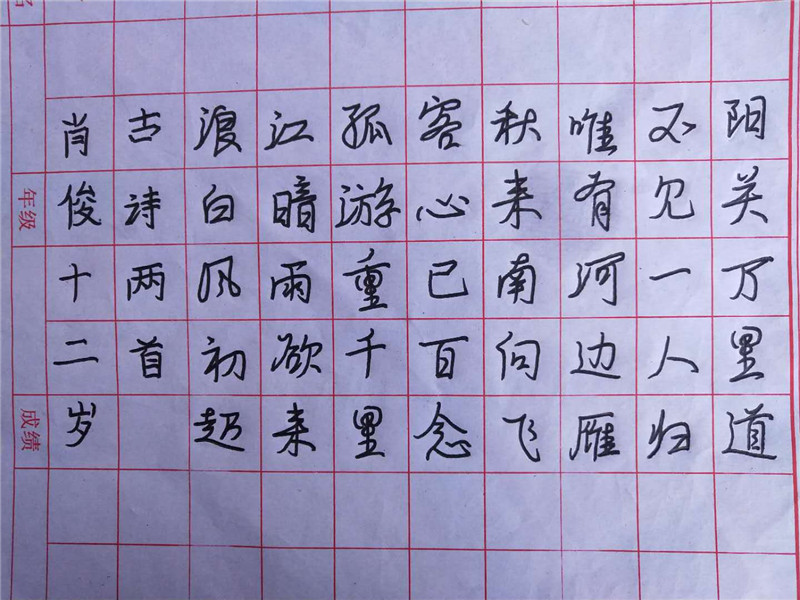 阳关万里道
不见一人归
唯有河边雁
秋来南向飞
客心已百念
孤游重千里
江暗雨欲来
浪白风初起
古诗两首
肖俊十二岁
年级
成绩